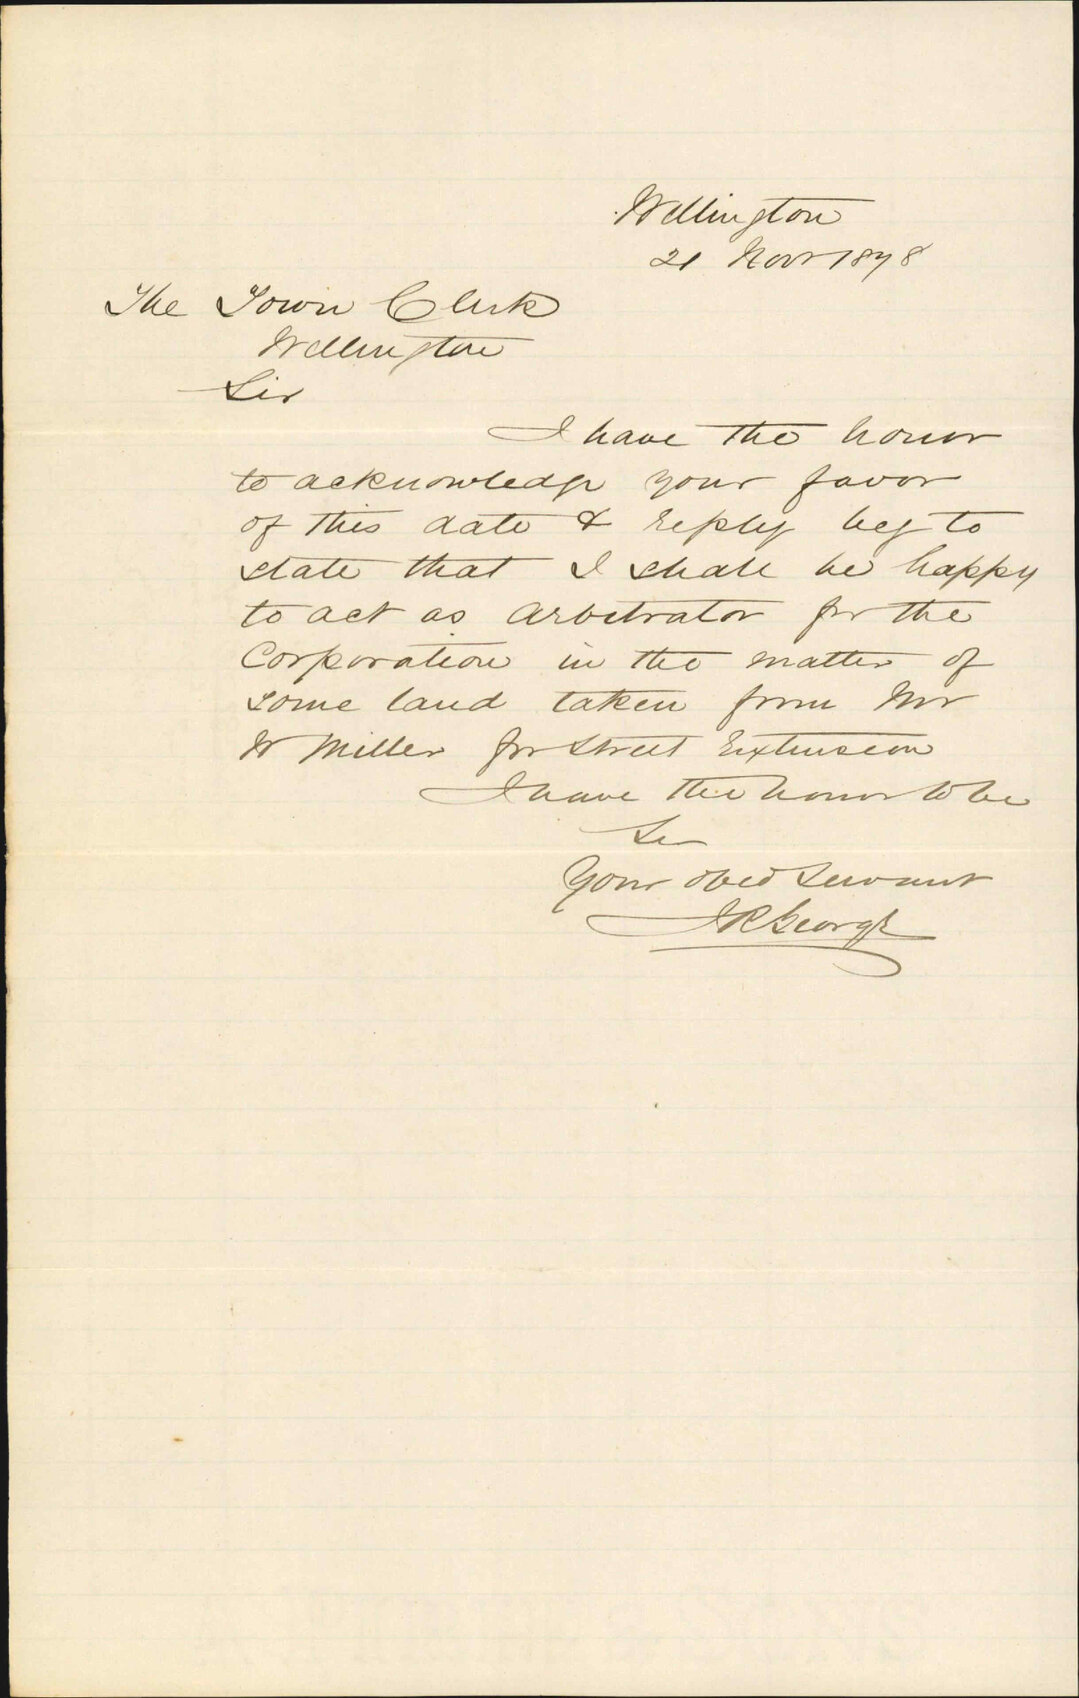 Wellington
21 Novr 1878
The Town Clerk
Wellington
Sir
I have the honor
to acknowledge your favor
of this date & reply beg to
state that I shall be happy
to act as Arbitrator for the
Corporation in the matter of
some land taken from Mr
W Miller for Street Extension
I have the honor to be
Sir
Your obed Servant
J R George